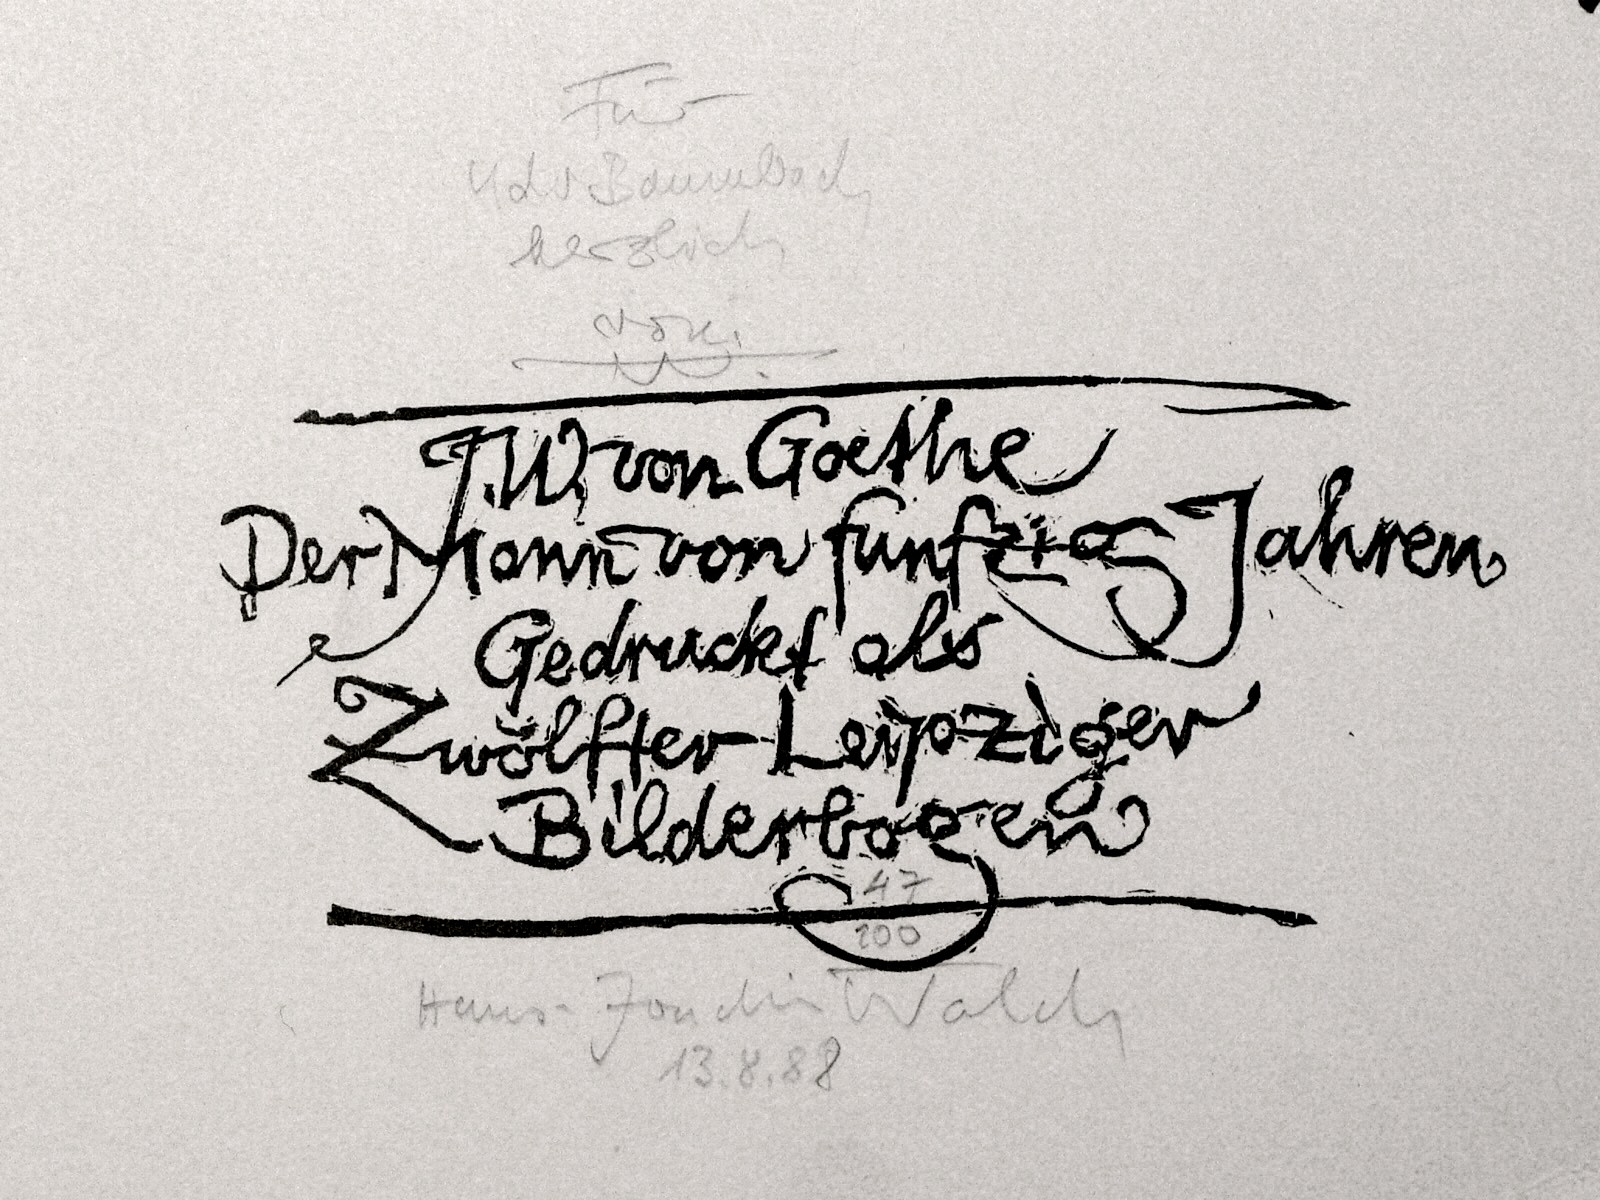 Für
Udo Baumbach
herzlich
J.W. von Goethe
Der Mann von funfzig Jahren
Gedruckt als
Zwölfter Leipziger
Bilderbogen
47
100
Hans-Joachim Walch
13.8.88